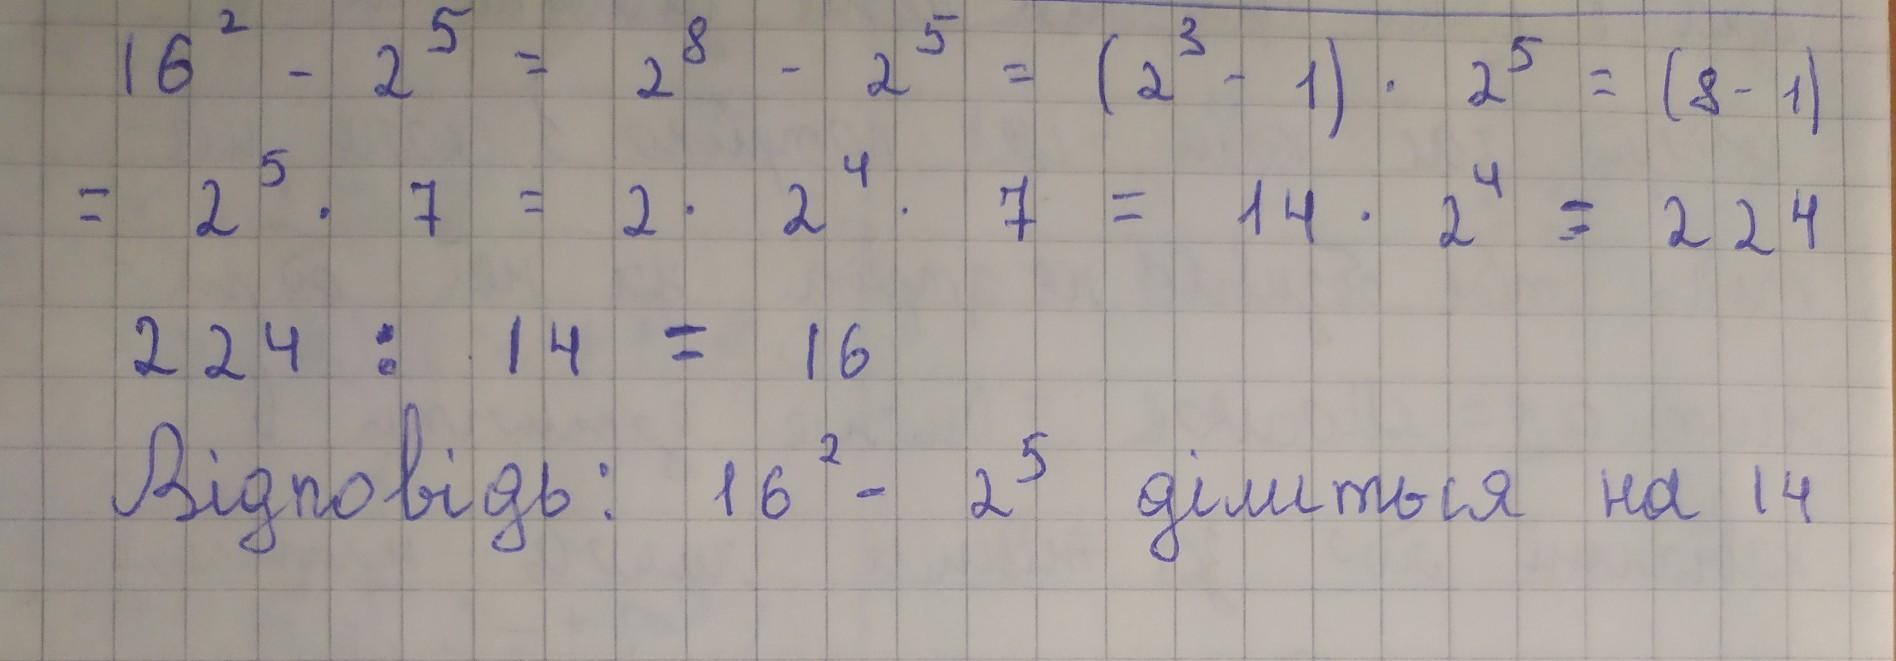 16² - 2⁵ = 2⁸ - 2⁵ = (2³ - 1) · 2⁵ = (8 - 1)
= 2⁵ · 7 = 2 · 2⁴ · 7 = 14 · 2⁴ = 224
224 : 14 = 16
Відповідь: 16² - 2⁵ ділиться на 14